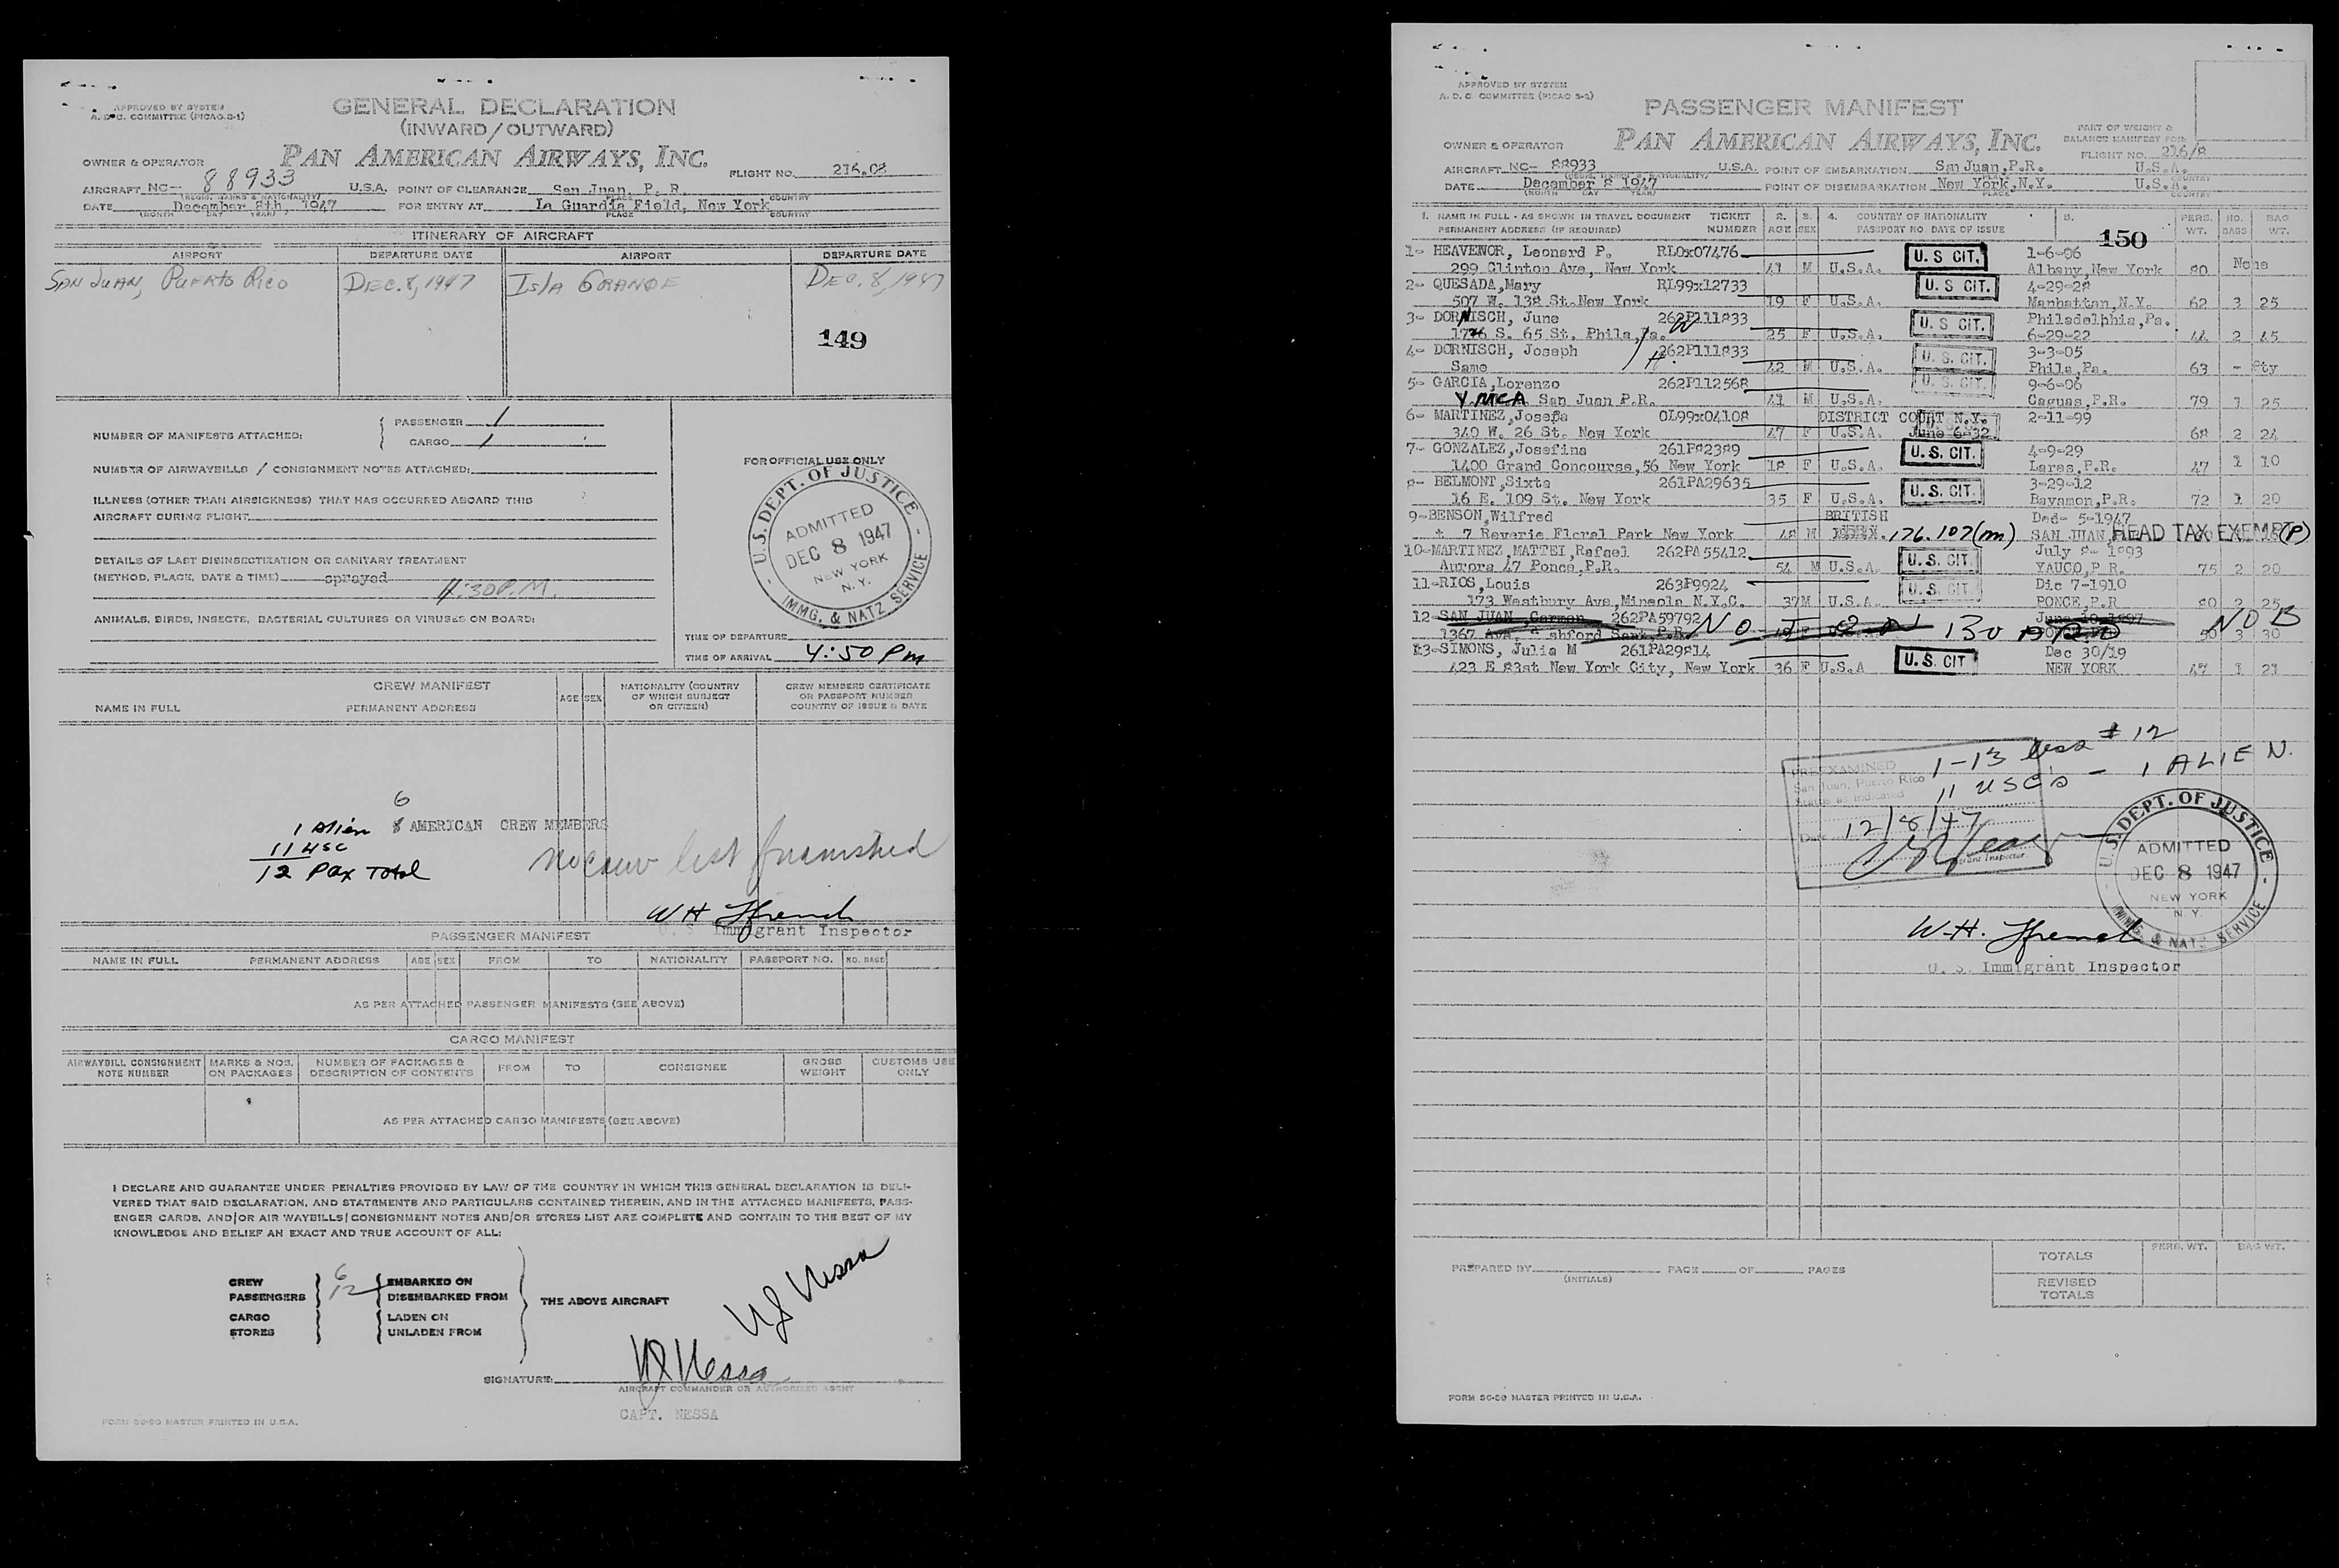 APPROVED BY SYSTEM
A. D. C. COMMITTEE (PICAO 3-1)
GENERAL DECLARATION
(INWARD/OUTWARD)
OWNER & OPERATOR
PAN AMERICAN AIRWAYS, INC.
FLIGHT NO. 216.08
AIRCRAFT NC- 88933 U.S.A. POINT OF CLEARANCE San Juan, P. R.
(REGIS. MARKS & NATIONALITY) PLACE COUNTRY
DATE December 8th, 1947 FOR ENTRY AT La Guardia Field, New York
(MONTH DAY YEAR) PLACE COUNTRY
ITINERARY OF AIRCRAFT
AIRPORT DEPARTURE DATE AIRPORT DEPARTURE DATE
SAN JUAN, PUERTO RICO DEC. 8, 1947 ISLA GRANDE DEC. 8, 1947
149
NUMBER OF MANIFESTS ATTACHED: PASSENGER 1
CARGO 1
NUMBER OF AIRWAYBILLS / CONSIGNMENT NOTES ATTACHED:
ILLNESS (OTHER THAN AIRSICKNESS) THAT HAS OCCURRED ABOARD THIS
AIRCRAFT DURING FLIGHT
DETAILS OF LAST DISINSECTIZATION OR SANITARY TREATMENT
(METHOD, PLACE, DATE & TIME) sprayed 11:30 P.M.
ANIMALS, BIRDS, INSECTS, BACTERIAL CULTURES OR VIRUSES ON BOARD:
FOR OFFICIAL USE ONLY
U.S. DEPT. OF JUSTICE
ADMITTED
DEC 8 1947
NEW YORK
N. Y.
IMMG. & NATZ SERVICE
TIME OF DEPARTURE
TIME OF ARRIVAL 4:50 Pm
CREW MANIFEST
NAME IN FULL PERMANENT ADDRESS AGE SEX NATIONALITY (COUNTRY OF WHICH SUBJECT OR CITIZEN) CREW MEMBERS CERTIFICATE OR PASSPORT NUMBER COUNTRY OF ISSUE & DATE
6
1 Alien 8 AMERICAN CREW MEMBERS
11 USC
12 Pax Total
No crew list furnished
W H Ffrench
U. S. Immigrant Inspector
PASSENGER MANIFEST
NAME IN FULL PERMANENT ADDRESS AGE SEX FROM TO NATIONALITY PASSPORT NO. NO. BAGS
AS PER ATTACHED PASSENGER MANIFESTS (SEE ABOVE)
CARGO MANIFEST
AIRWAYBILL CONSIGNMENT NOTE NUMBER MARKS & NOS. ON PACKAGES NUMBER OF PACKAGES & DESCRIPTION OF CONTENTS FROM TO CONSIGNEE GROSS WEIGHT CUSTOMS USE ONLY
AS PER ATTACHED CARGO MANIFESTS (SEE ABOVE)
I DECLARE AND GUARANTEE UNDER PENALTIES PROVIDED BY LAW OF THE COUNTRY IN WHICH THIS GENERAL DECLARATION IS DELI-
VERED THAT SAID DECLARATION, AND STATEMENTS AND PARTICULARS CONTAINED THEREIN, AND IN THE ATTACHED MANIFESTS, PASS-
ENGER CARDS, AND/OR AIR WAYBILLS/CONSIGNMENT NOTES AND/OR STORES LIST ARE COMPLETE AND CONTAIN TO THE BEST OF MY
KNOWLEDGE AND BELIEF AN EXACT AND TRUE ACCOUNT OF ALL:
CREW 6 EMBARKED ON
PASSENGERS 12 DISEMBARKED FROM
THE ABOVE AIRCRAFT
CARGO LADEN ON
STORES UNLADEN FROM
Nessa
SIGNATURE: Nessa
AIRCRAFT COMMANDER OR AUTHORIZED AGENT
CAPT. NESSA
FORM 96-90 MASTER PRINTED IN U.S.A.
APPROVED BY SYSTEM
A. D. C. COMMITTEE (PICAO 3-2)
PASSENGER MANIFEST
PART OF WEIGHT & BALANCE MANIFEST FOR:
OWNER & OPERATOR
PAN AMERICAN AIRWAYS, INC.
FLIGHT NO. 216/8
AIRCRAFT NC- 88933 U.S.A. POINT OF EMBARKATION San Juan, P.R. U.S.A.
(REGIS. MARKS & NATIONALITY) PLACE COUNTRY
DATE December 8 1947 POINT OF DISEMBARKATION New York, N.Y. U.S.A.
(MONTH DAY YEAR) PLACE COUNTRY
1. NAME IN FULL - AS SHOWN IN TRAVEL DOCUMENT TICKET 2. 3. 4. COUNTRY OF NATIONALITY 5. PERS. NO. BAG
PERMANENT ADDRESS (IF REQUIRED) NUMBER AGE SEX PASSPORT NO. DATE OF ISSUE 150 WT. BAGS WT.
1- HEAVENOR, Leonard P. RLOx07476 U. S CIT. 1-6-06
299 Clinton Ave, New York 41 M U.S.A. Albany, New York 80 None
2- QUESADA, Mary RL99x12733 U. S CIT. 4-29-28
507 W. 138 St. New York 19 F U.S.A. Manhattan, N.Y. 62 3 25
3- DORNISCH, June 262P111833 U. S CIT. Philadelphia, Pa.
1726 S. 65 St. Phila, Pa. W 25 F U.S.A. 6-29-22 44 2 45
4- DORNISCH, Joseph H. 262P111833 U. S. CIT. 3-3-05
Same 42 M U.S.A. Phila, Pa. 63 - Pty
5- GARCIA, Lorenzo 262P112568 U. S. CIT. 9-6-06
YMCA San Juan P.R. 41 M U.S.A. Caguas, P.R. 79 1 25
6- MARTINEZ, Josefa OL99x04108 DISTRICT COURT N.Y. 2-11-99
340 W. 26 St. New York 47 F U.S.A. June 6-32 68 2 24
7- GONZALEZ, Josefina 261P82389 U. S. CIT. 4-9-29
1400 Grand Concourse, 56 New York 18 F U.S.A. Lares, P.R. 47 1 10
8- BELMONT, Sixta 261PA29635 U. S. CIT. 3-29-12
16 E. 109 St. New York 35 F U.S.A. Bayamon, P.R. 72 1 20
9- BENSON, Wilfred BRITISH Dec- 5-1947
7 Reverie Floral Park New York 48 M 176.107(m) SAN JUAN HEAD TAX EXEMPT (P)
10- MARTINEZ, MATTEI, Rafael 262PA55412 U. S. CIT. July 8- 1893
Aurora 47 Ponce, P.R. 54 M U.S.A. YAUCO, P R. 75 2 20
11- RIOS, Louis 263P9924 U. S. CIT. Dic 7-1910
173 Westbury Ave, Mineola N.Y.C. 37 M U.S.A. PONCE, P.R 80 2 25
12- SAN JUAN, Carmen 262PA59792 NO BOARD NO B
1367 Ave. Ashford Sant, P.R. 50 3 30
13- SIMONS, Julia M 261PA29814 U. S. CIT Dec 30/19
423 E 83st New York City, New York 36 F U.S.A NEW YORK 47 1 21
PREEXAMINED 1-13 less # 12
San Juan, Puerto Rico 11 USC's - 1 ALIEN.
Status as indicated
Date 12/8/47
Immigrant Inspector
U.S. DEPT. OF JUSTICE
ADMITTED
DEC 8 1947
NEW YORK
N. Y.
IMMG. & NATZ SERVICE
W. H. Ffrench
U. S. Immigrant Inspector
TOTALS PERS. WT. BAG WT.
PREPARED BY (INITIALS) PAGE OF PAGES
REVISED TOTALS
FORM 96-89 MASTER PRINTED IN U.S.A.